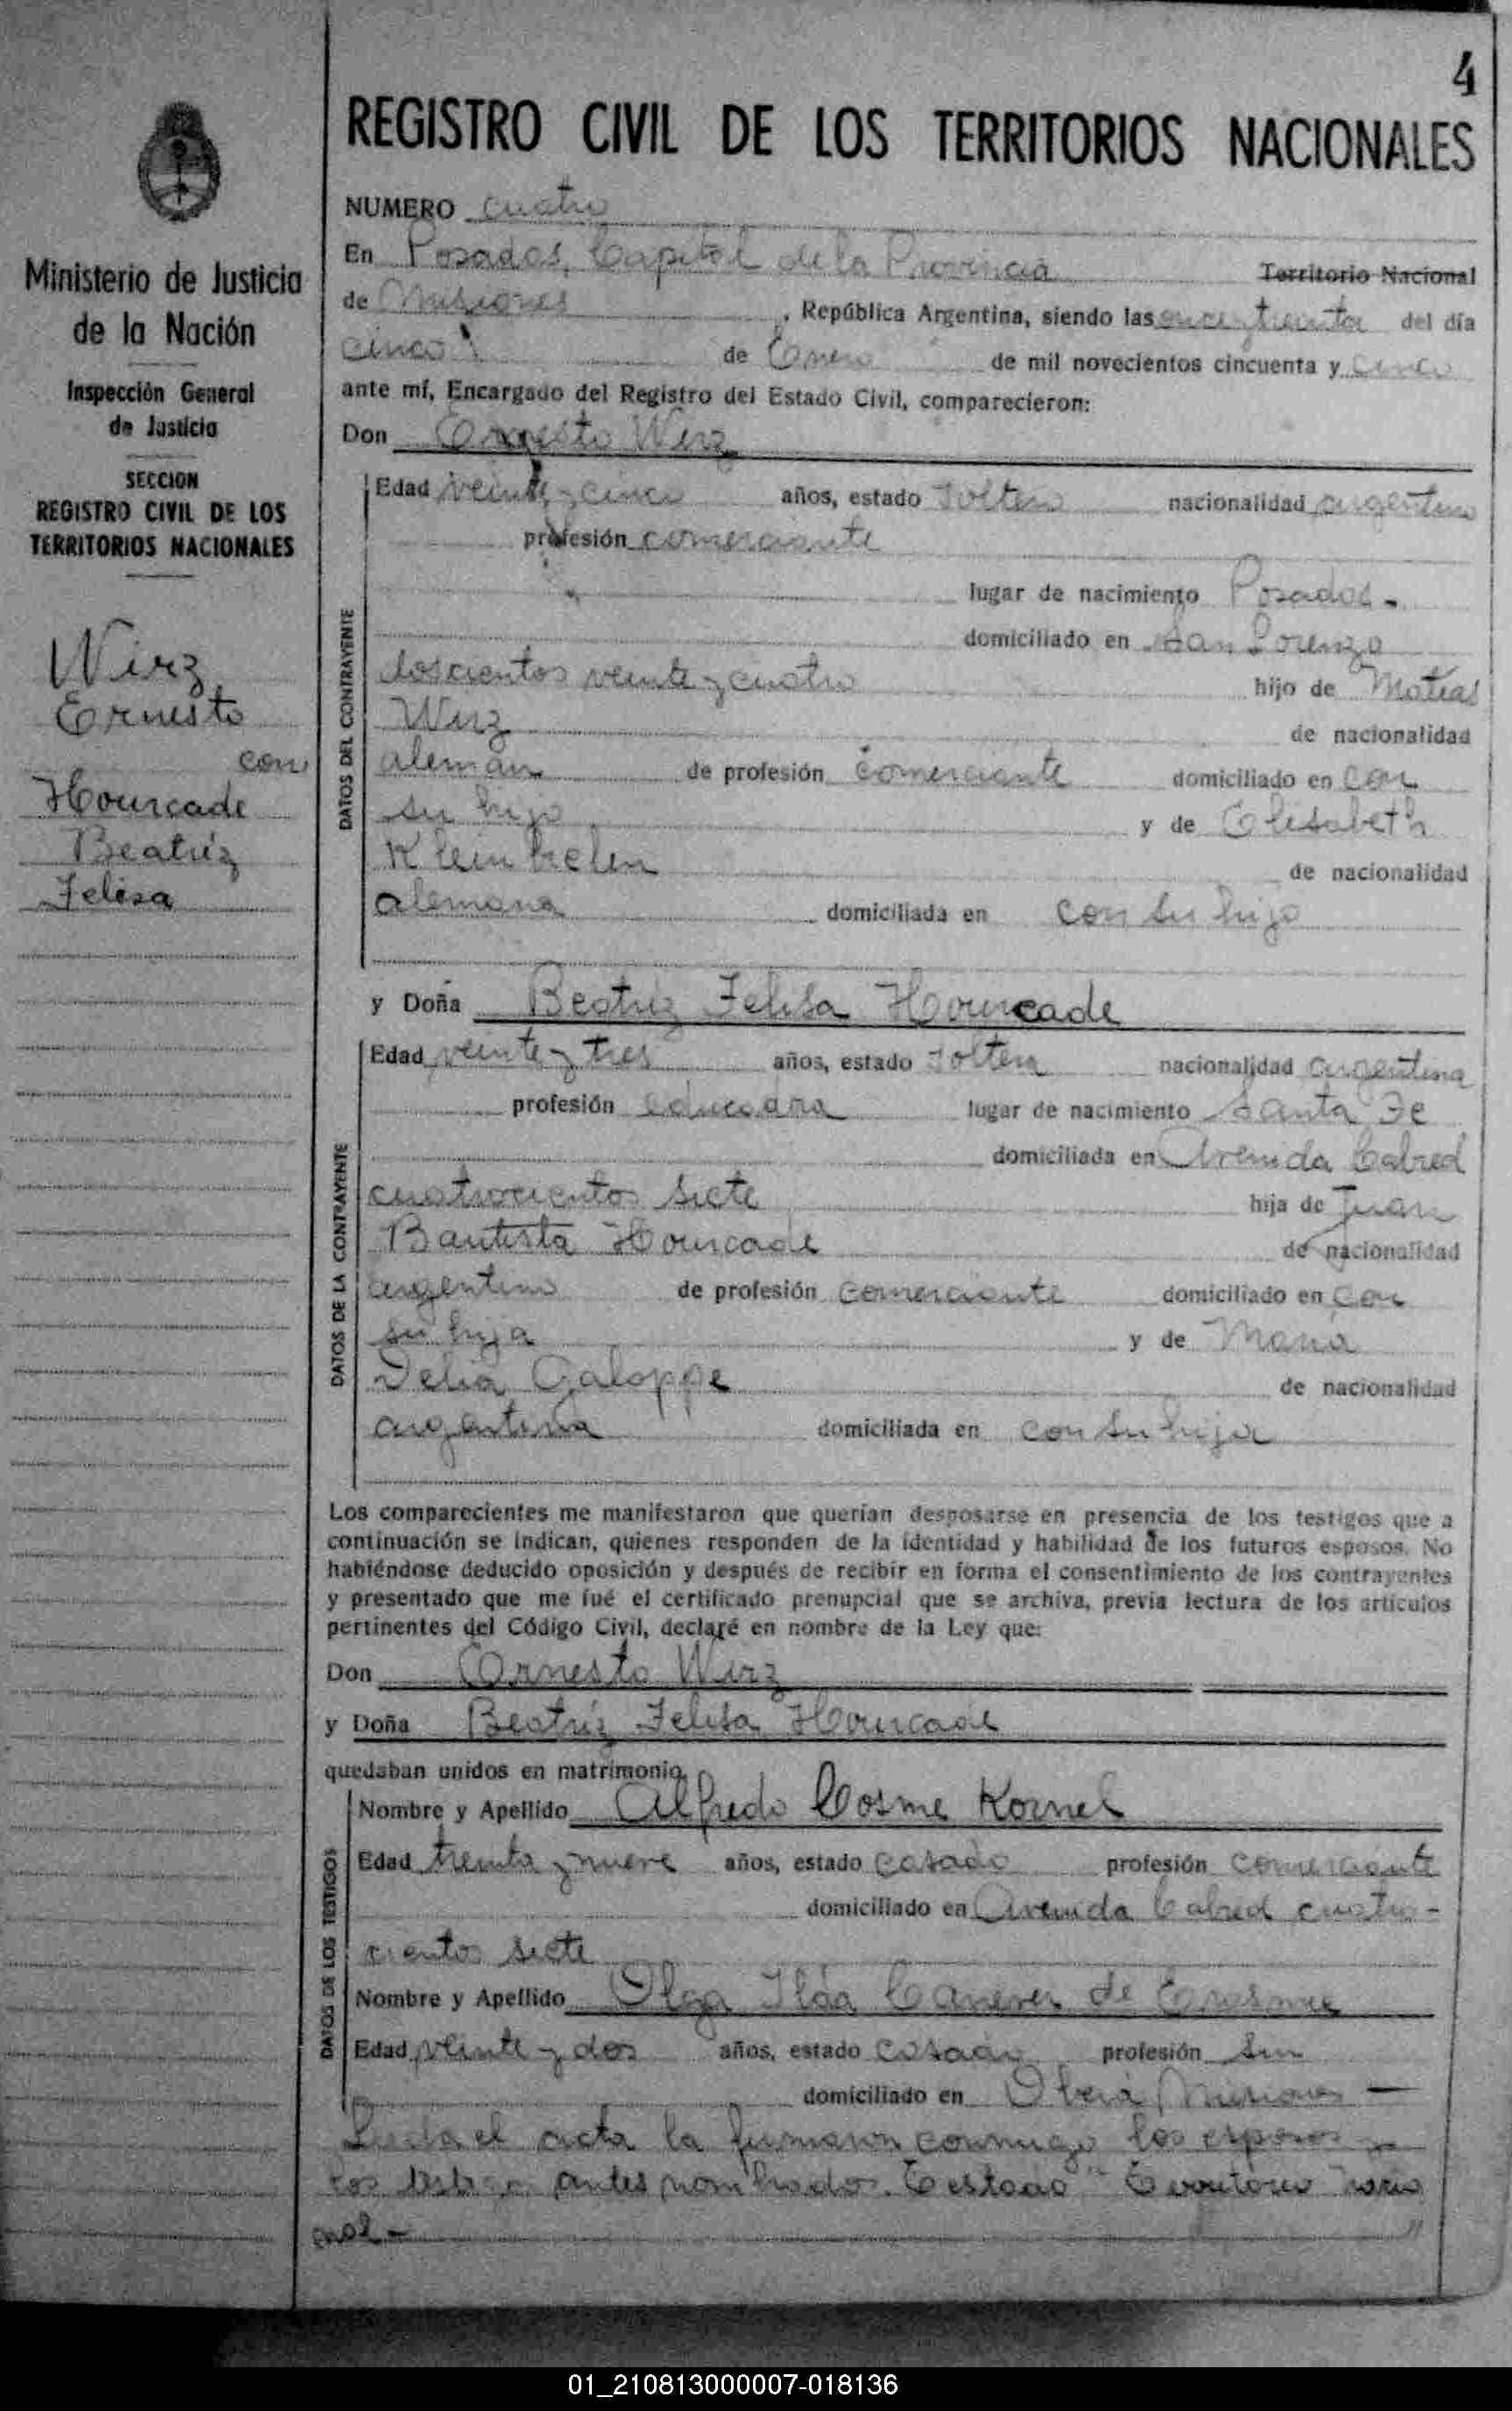 4
REGISTRO CIVIL DE LOS TERRITORIOS NACIONALES
Ministerio de Justicia
de la Nación
Inspección General
de Justicia
SECCION
REGISTRO CIVIL DE LOS
TERRITORIOS NACIONALES
Wirz
Ernesto
con
Hourcade
Beatriz
Felisa
NUMERO cuatro
En Posadas, Capital de la Provincia Territorio Nacional
de Misiones, República Argentina, siendo las once y treinta del día
cinco de Enero de mil novecientos cincuenta y cinco
ante mí, Encargado del Registro del Estado Civil, comparecieron:
Don Ernesto Wirz
DATOS DEL CONTRAYENTE
Edad veinte y cinco años, estado soltero nacionalidad argentino
profesión comerciante
lugar de nacimiento Posadas -
domiciliado en San Lorenzo
doscientos veinte y cuatro hijo de Matías
Wirz de nacionalidad
alemán de profesión comerciante domiciliado en con
su hijo y de Elisabeth
de nacionalidad
alemana domiciliada en con su hijo
y Doña Beatriz Felisa Hourcade
DATOS DE LA CONTRAYENTE
Edad veinte y tres años, estado soltera nacionalidad argentina
profesión lugar de nacimiento Santa Fe
domiciliada en Avenida Cabred
cuatrocientos siete hija de Juan
Bautista Hourcade de nacionalidad
argentino de profesión comerciante domiciliado en con
su hija y de María
Delia Galoppe de nacionalidad
argentina domiciliada en con su hija
Los comparecientes me manifestaron que querían desposarse en presencia de los testigos que a
continuación se indican, quienes responden de la identidad y habilidad de los futuros esposos. No
habiéndose deducido oposición y después de recibir en forma el consentimiento de los contrayentes
y presentado que me fué el certificado prenupcial que se archiva, previa lectura de los artículos
pertinentes del Código Civil, declaré en nombre de la Ley que:
Don Ernesto Wirz
y Doña Beatriz Felisa Hourcade
quedaban unidos en matrimonio.
DATOS DE LOS TESTIGOS
Nombre y Apellido Alfredo Cosme Kornel
Edad treinta y nueve años, estado casado profesión comerciante
domiciliado en Avenida Cabred cuatro-
cientos siete
Nombre y Apellido Olga Ilda de
Edad veinte y dos años, estado casada profesión sin
domiciliado en Oberá Misiones -
el acta la firmaron conmigo los esposos y
los testigos antes nombrados. Testado "Territorio Nacio
nal - "
01_210813000007-018136